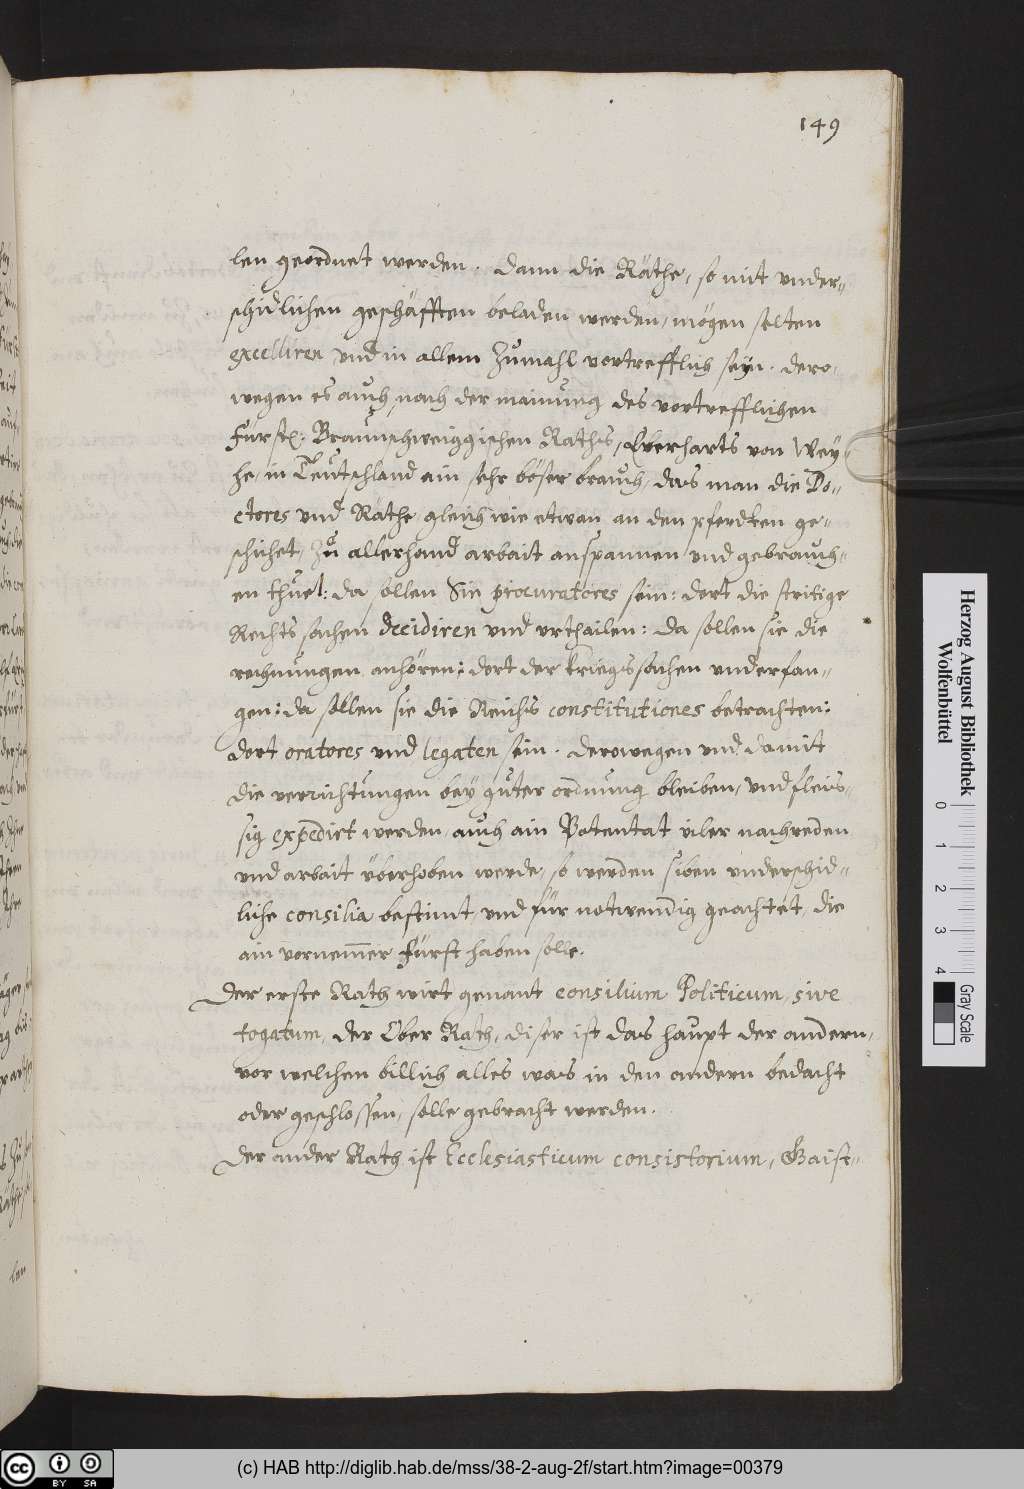 149
len geordnet werden. dann die Räthe, so mit vnder-
schidlichen geschäfften beladen werden, mögen selten
excelliren vnd in allem zumahl vortrefflich seyn. dero-
wegen es auch nach der mainung des vortrefflichen
Fürstl: Braunschweiggischen Raths, Eberharts von Wey-
he, in Teutschland ain sehr böser brauch, das man die Do-
ctores vnd Räthe gleich wie etwan an den pferdten ge-
schihet, zu allerhand arbait anspannen vnd gebrauch-
en thuet: da sollen Sie procuratores sein: dort die stritige
Rechts sachen decidiren vnd vrthailen: da sollen sie die
rechnungen anhören: dort der kriegssachen vnderfan-
gen: da sollen sie die Reichs constitutiones betrachten:
dort oratores vnd legaten sein. derowegen vnd damit
die verrichtungen bey guter ordnung bleiben, vnd fleis-
sig expedirt werden, auch ain Potentat viler nachreden
vnd arbait vberhoben werde, so werden siben vnderschid-
liche consilia bestimt, vnd für notwendig geachtet, die
ain vornemer Fürst haben solle.
Der erste Rath wirt genant consilium Politicum, sive
togatum, der Ober Rath, diser ist das haupt der andern,
vor welchen billich alles was in den andern bedacht
oder geschlossen, solle gebracht werden.
Der ander Rath ist Ecclesiasticum consistorium, Gaist-
len
Herzog August Bibliothek
Wolfenbüttel
0 1 2 3 4
Gray Scale
cc BY SA
(c) HAB http://diglib.hab.de/mss/38-2-aug-2f/start.htm?image=00379